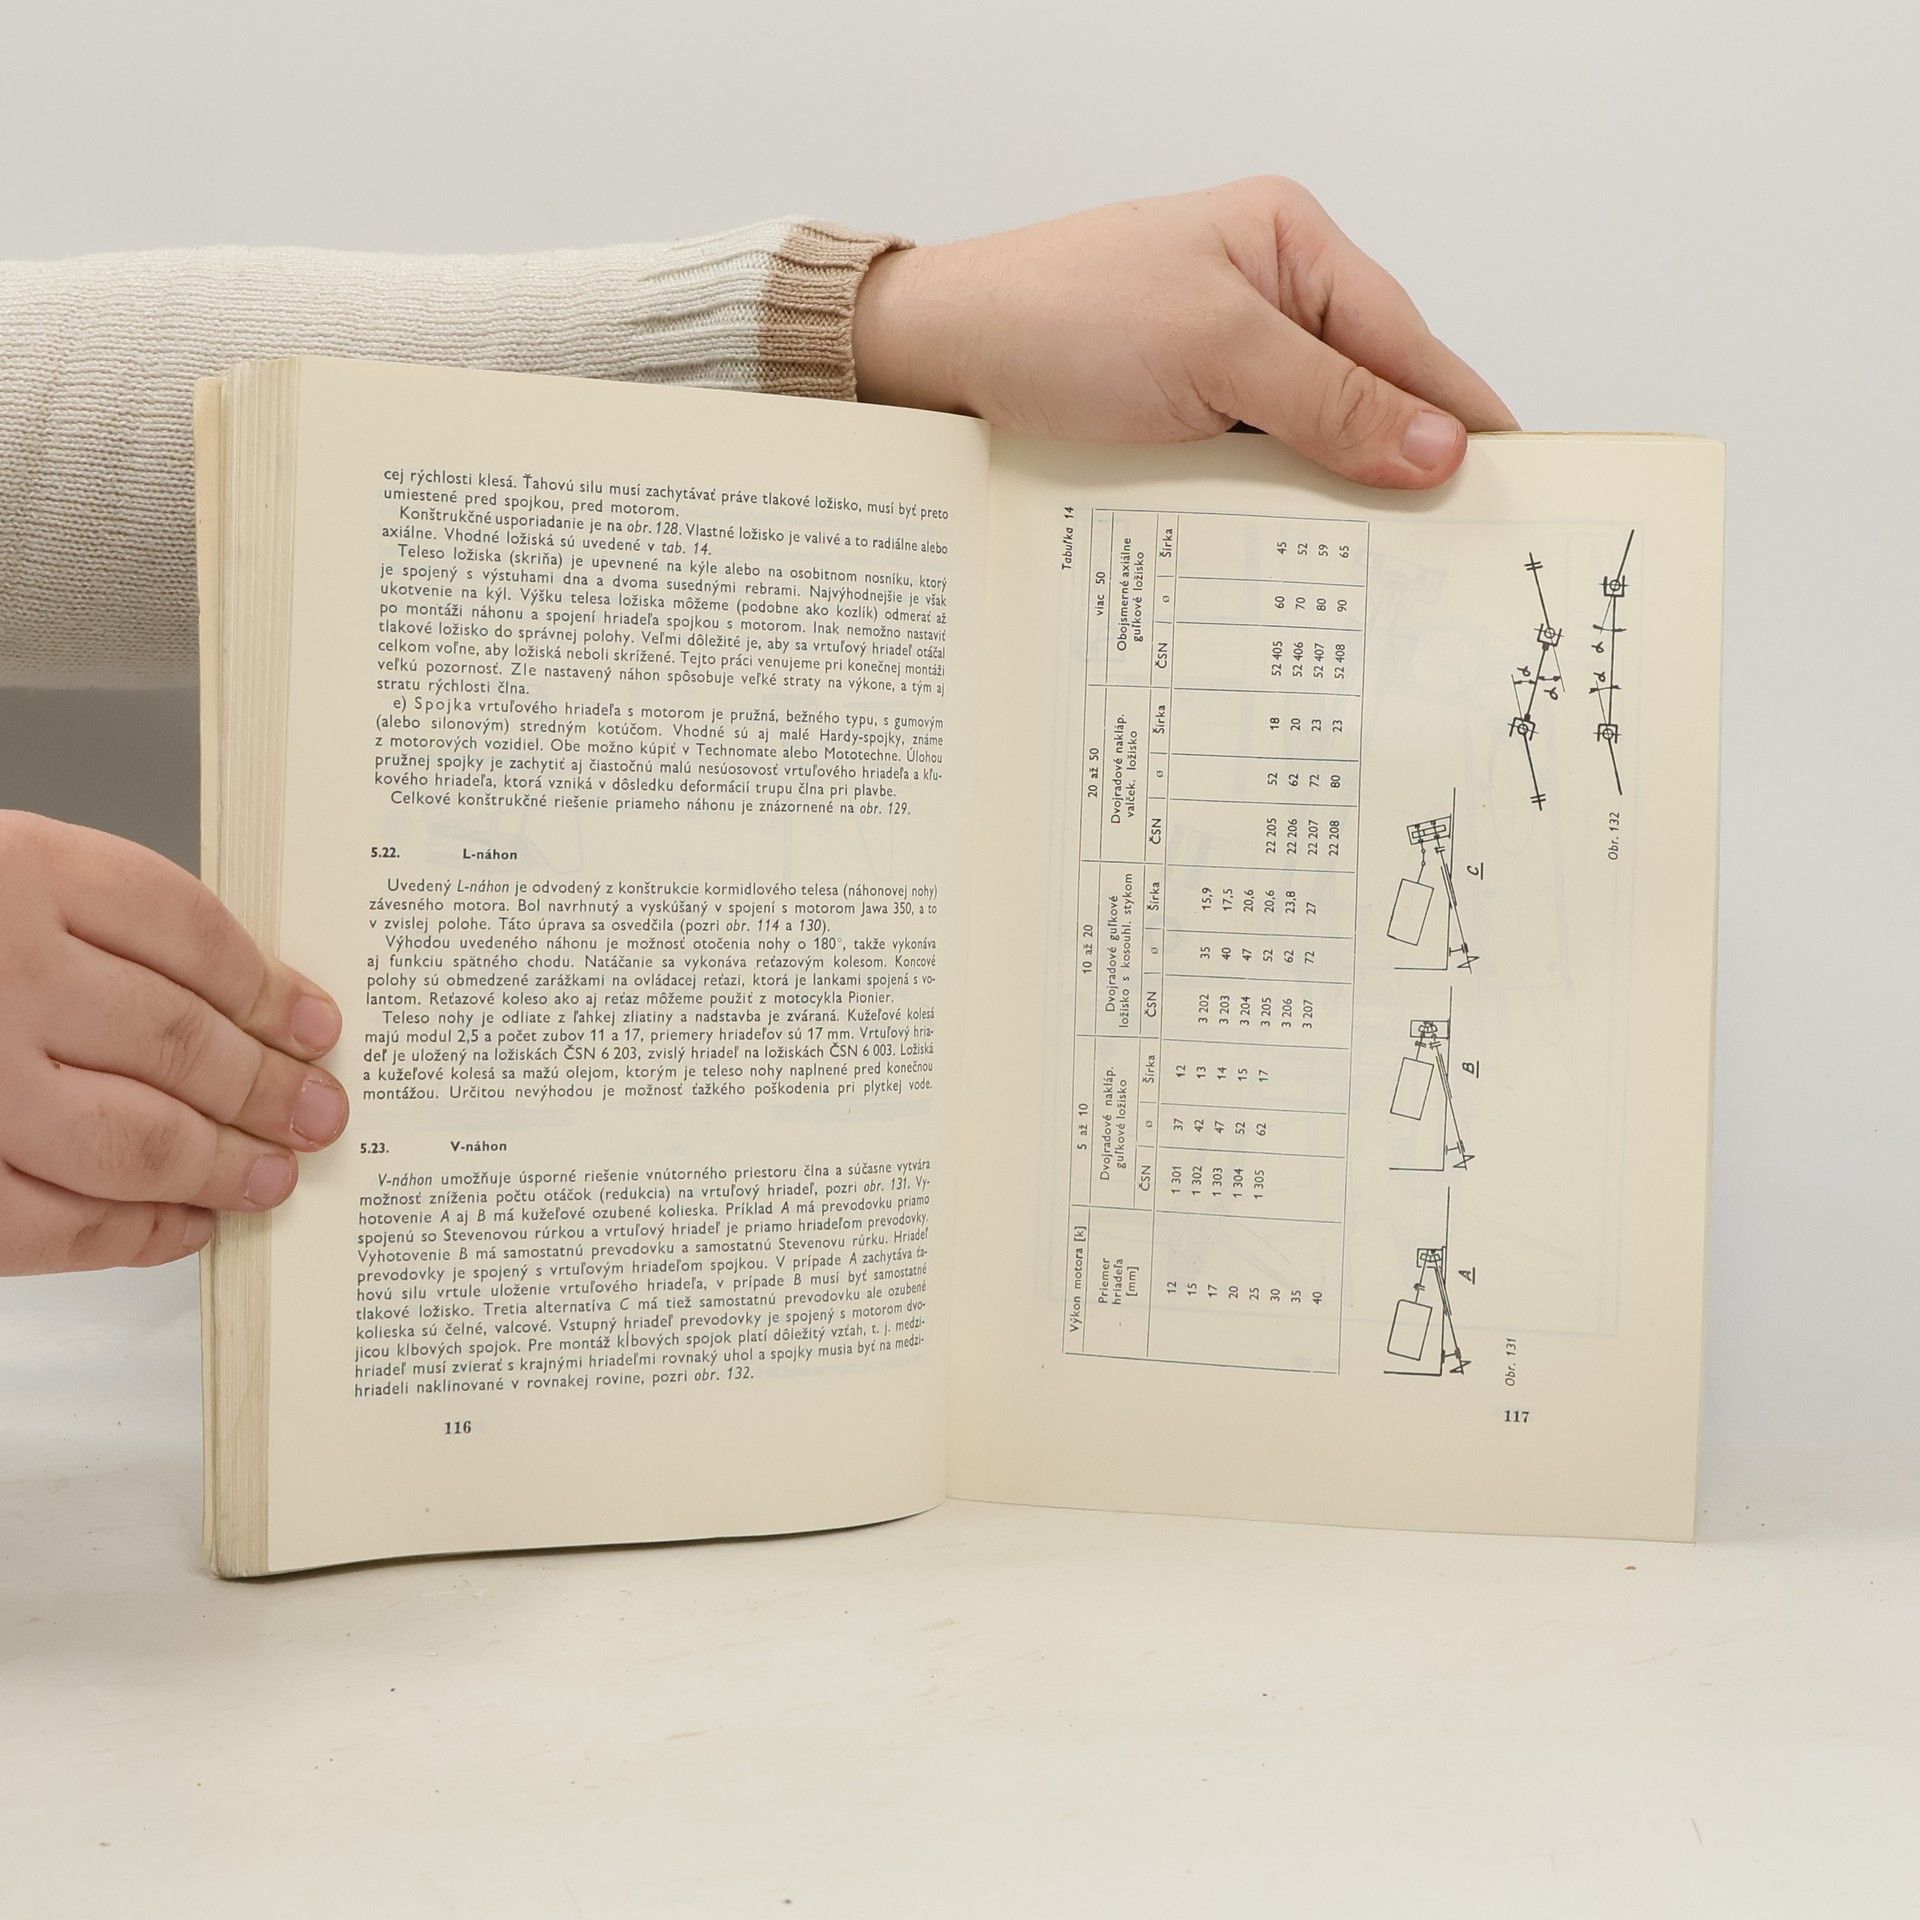 cej rýchlosti klesá. Ťahovú silu musí zachytávať práve tlakové ložisko, musí byť preto
umiestené pred spojkou, pred motorom.
Konštrukčné usporiadanie je na obr. 128. Vlastné ložisko je valivé a to radiálne alebo
axiálne. Vhodné ložiská sú uvedené v tab. 14.
Teleso ložiska (skriňa) je upevnené na kýle alebo na osobitnom nosníku, ktorý
je spojený s výstuhami dna a dvoma susednými rebrami. Najvýhodnejšie je však
ukotvenie na kýl. Výšku telesa ložiska môžeme (podobne ako kozlík) odmerať až
po montáži náhonu a spojení hriadeľa spojkou s motorom. Inak nemožno nastaviť
tlakové ložisko do správnej polohy. Veľmi dôležité je, aby sa vrtuľový hriadeľ otáčal
celkom voľne, aby ložiská neboli skrížené. Tejto práci venujeme pri konečnej montáži
veľkú pozornosť. Zle nastavený náhon spôsobuje veľké straty na výkone, a tým aj
stratu rýchlosti člna.
e) Spojka vrtuľového hriadeľa s motorom je pružná, bežného typu, s gumovým
(alebo silonovým) stredným kotúčom. Vhodné sú aj malé Hardy-spojky, známe
z motorových vozidiel. Obe možno kúpiť v Technomate alebo Mototechne. Úlohou
pružnej spojky je zachytiť aj čiastočnú malú nesúosovosť vrtuľového hriadeľa a kľu-
kového hriadeľa, ktorá vzniká v dôsledku deformácií trupu člna pri plavbe.
Celkové konštrukčné riešenie priameho náhonu je znázornené na obr. 129.
5.22. L-náhon
Uvedený L-náhon je odvodený z konštrukcie kormidlového telesa (náhonovej nohy)
závesného motora. Bol navrhnutý a vyskúšaný v spojení s motorom Jawa 350, a to
v zvislej polohe. Táto úprava sa osvedčila (pozri obr. 114 a 130).
Výhodou uvedeného náhonu je možnosť otočenia nohy o 180°, takže vykonáva
aj funkciu spätného chodu. Natáčanie sa vykonáva reťazovým kolesom. Koncové
polohy sú obmedzené zarážkami na ovládacej reťazi, ktorá je lankami spojená s vo-
lantom. Reťazové koleso ako aj reťaz môžeme použiť z motocykla Pionier.
Teleso nohy je odliate z ľahkej zliatiny a nadstavba je zváraná. Kužeľové kolesá
majú modul 2,5 a počet zubov 11 a 17, priemery hriadeľov sú 17 mm. Vrtuľový hria-
deľ je uložený na ložiskách ČSN 6 203, zvislý hriadeľ na ložiskách ČSN 6 003. Ložiská
a kužeľové kolesá sa mažú olejom, ktorým je teleso nohy naplnené pred konečnou
montážou. Určitou nevýhodou je možnosť ťažkého poškodenia pri plytkej vode.
5.23. V-náhon
V-náhon umožňuje úsporné riešenie vnútorného priestoru člna a súčasne vytvára
možnosť zníženia počtu otáčok (redukcia) na vrtuľový hriadeľ, pozri obr. 131. Vy-
hotovenie A aj B má kužeľové ozubené kolieska. Príklad A má prevodovku priamo
spojenú so Stevenovou rúrkou a vrtuľový hriadeľ je priamo hriadeľom prevodovky.
Vyhotovenie B má samostatnú prevodovku a samostatnú Stevenovu rúrku. Hriadeľ
prevodovky je spojený s vrtuľovým hriadeľom spojkou. V prípade A zachytáva ťa-
hovú silu vrtule uloženie vrtuľového hriadeľa, v prípade B musí byť samostatné
tlakové ložisko. Tretia alternatíva C má tiež samostatnú prevodovku ale ozubené
kolieska sú čelné, valcové. Vstupný hriadeľ prevodovky je spojený s motorom dvo-
jicou kĺbových spojok. Pre montáž kĺbových spojok platí dôležitý vzťah, t. j. medzi-
hriadeľ musí zvierať s krajnými hriadeľmi rovnaký uhol a spojky musia byť na medzi-
hriadeli naklinované v rovnakej rovine, pozri obr. 132.
116
Tabuľka 14
Výkon motora [k] 5 až 10 10 až 20 20 až 50 viac 50
Priemer hriadeľa [mm] Dvojradové nakláp. guľkové ložisko Dvojradové guľkové ložisko s kosouhl. stykom Dvojradové nakláp. valček. ložisko Obojsmerné axiálne guľkové ložisko
ČSN ø Šírka ČSN ø Šírka ČSN ø Šírka ČSN ø Šírka
12 1 301 37 12
15 1 302 42 13 3 202 35 15,9
17 1 303 47 14 3 203 40 17,5
20 1 304 52 15 3 204 47 20,6
25 1 305 62 17 3 205 52 20,6 22 205 52 18 52 405 60 45
30 3 206 62 23,8 22 206 62 20 52 406 70 52
35 3 207 72 27 22 207 72 23 52 407 80 59
40 22 208 80 23 52 408 90 65
A
B
C
Obr. 131
α
α
α
α
Obr. 132
117